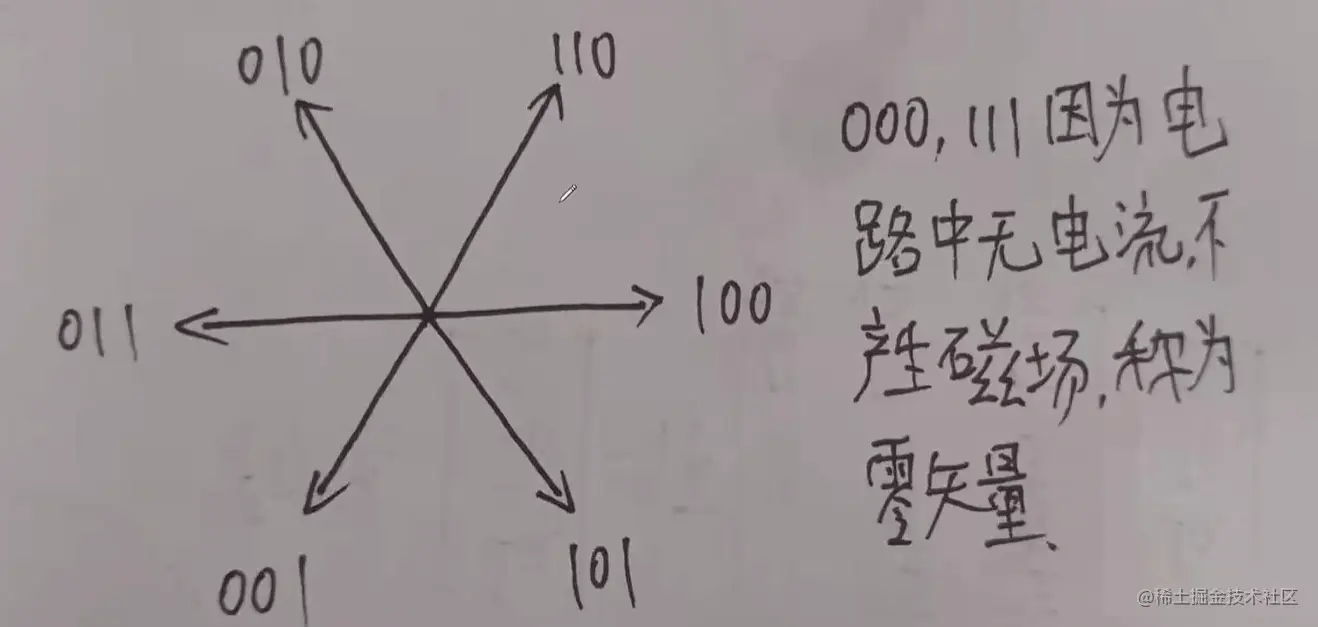 010
110
011
100
001
101
000,111因为电
路中无电流,不
产生磁场,称为
零矢量、
@稀土掘金技术社区